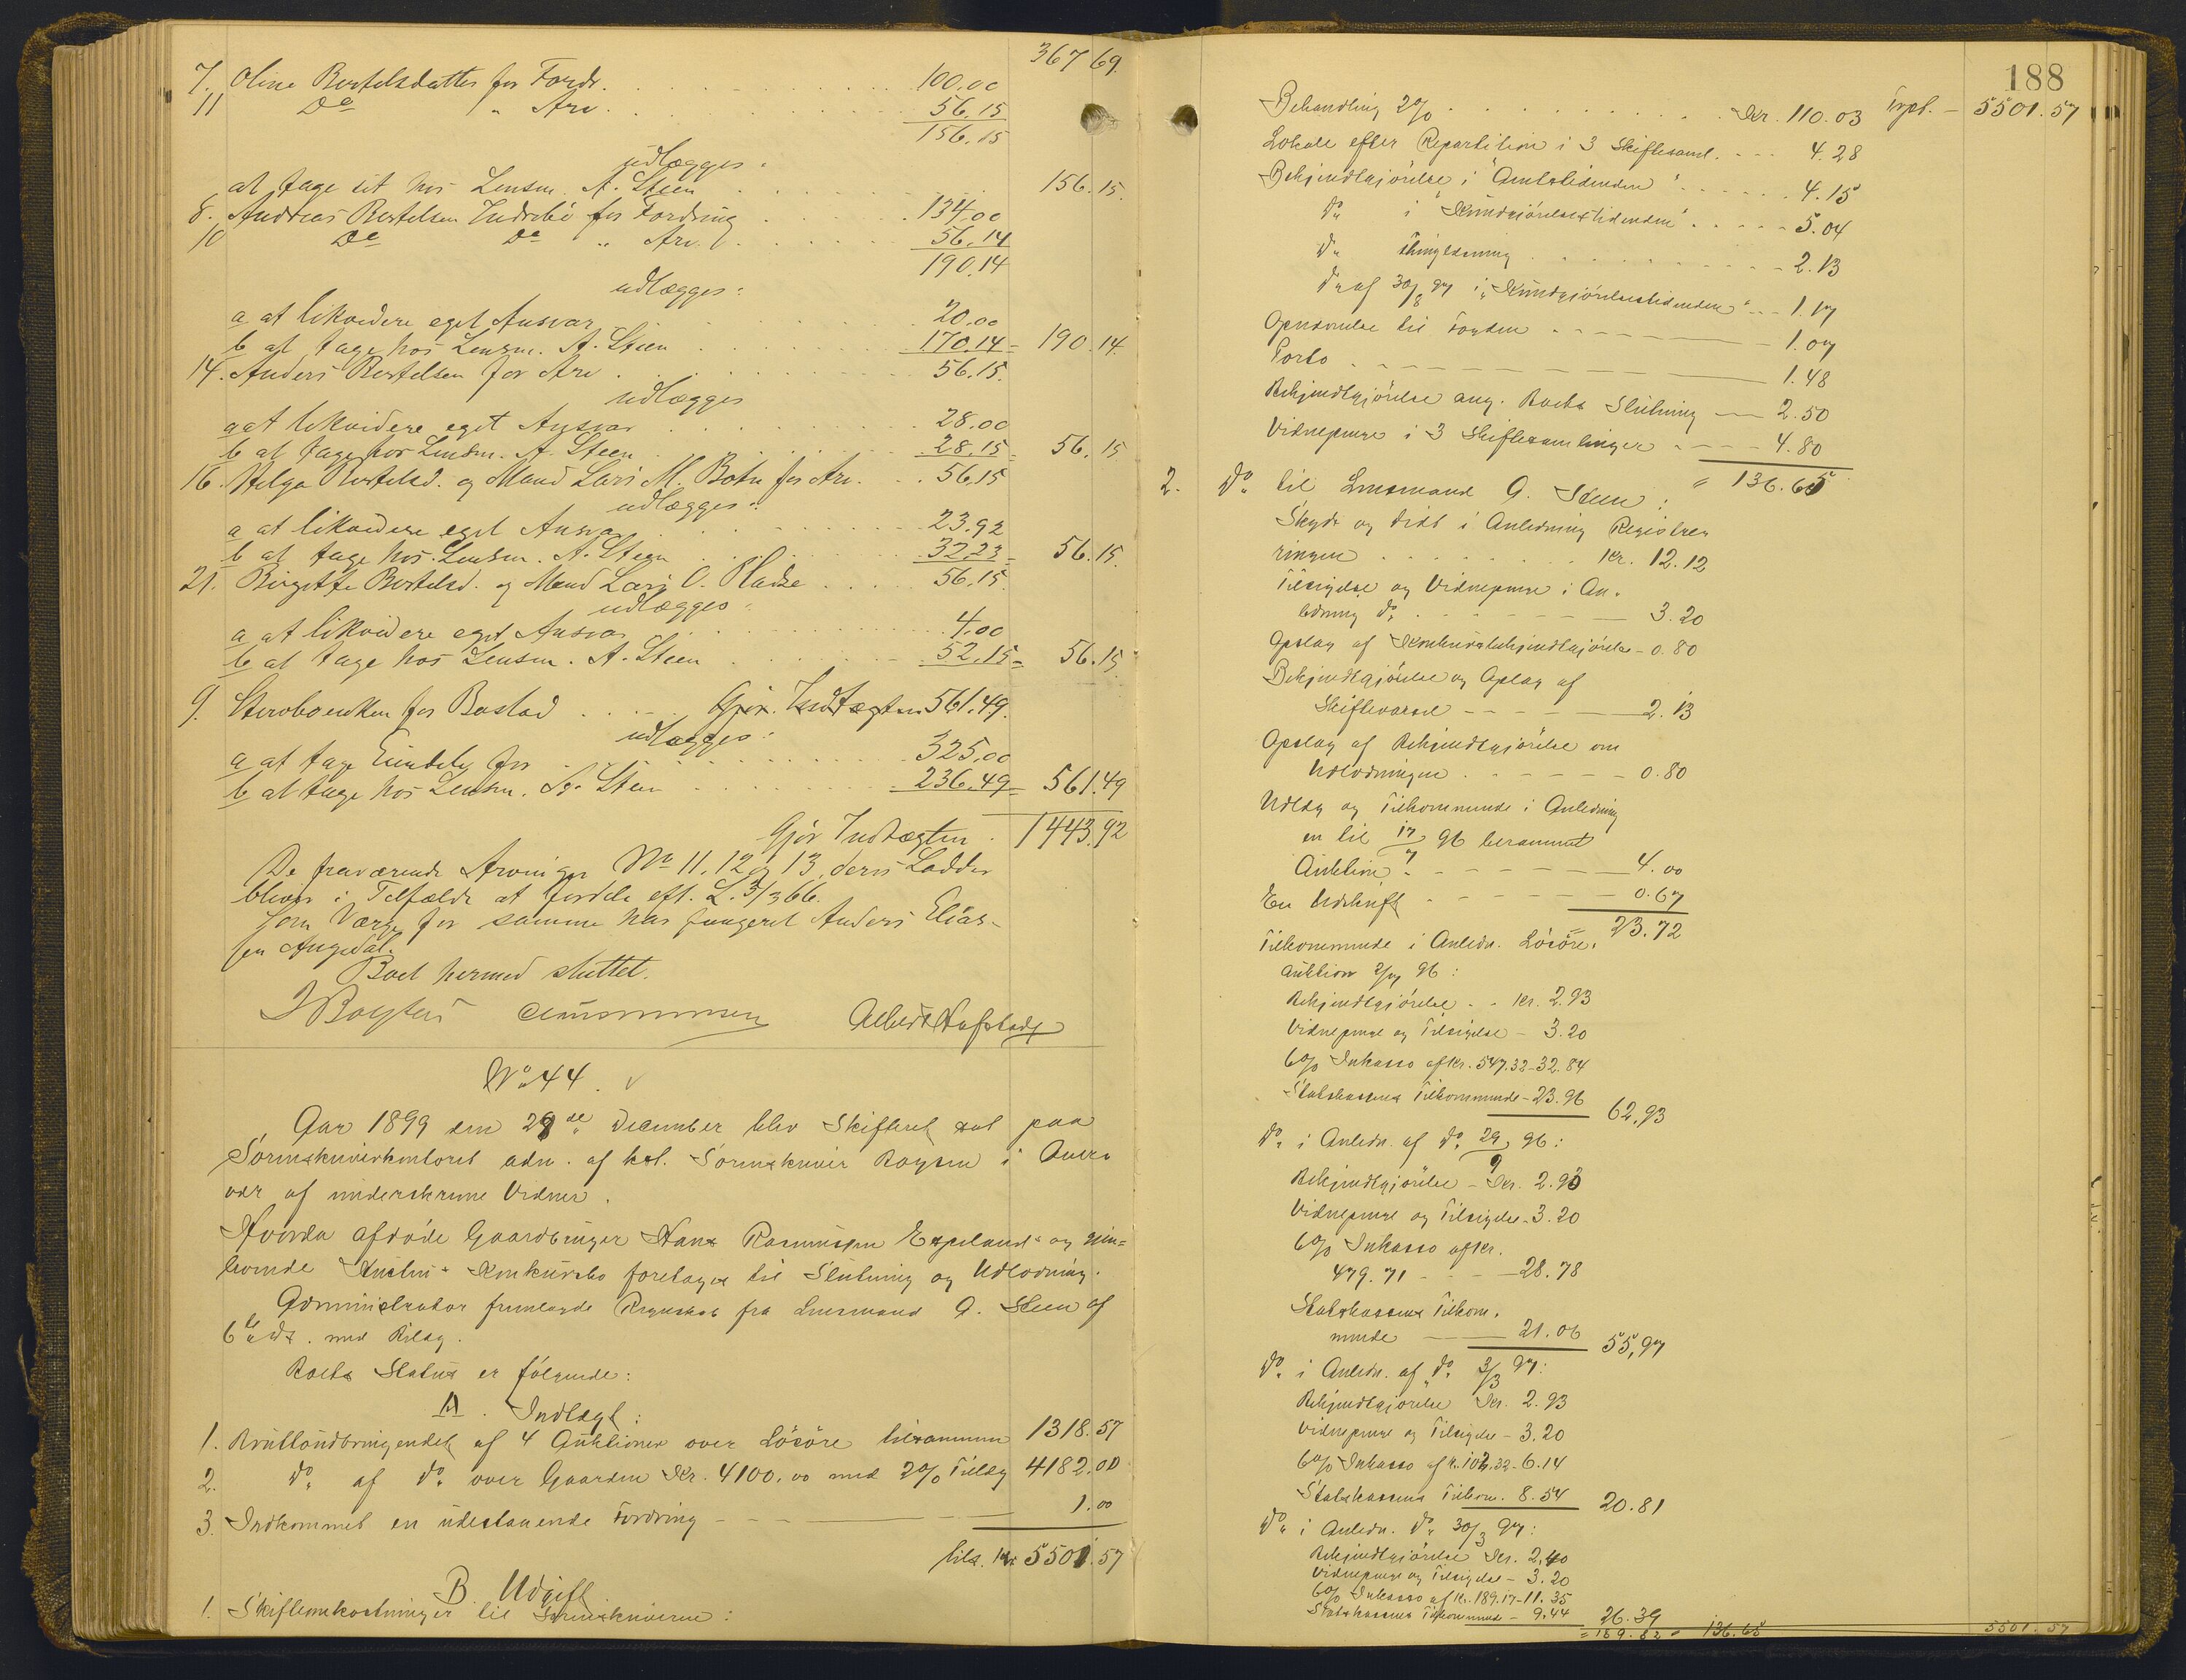 367 69.
7. Oline Bertelsdatter for Fordr. 100.00
11 Do " Arv. 56.15
156.15
udlægges:
at tage ut hos Lensm. A. Steen 156.15.
8. Andreas Bertelsen Indrebö for Fordring 134.00
10 Do Do " Arv. 56.14
190.14
udlægges:
a at likvidere eget Ansvar 20.00
b at tage hos Lensm. A. Steen 170.14 = 190.14.
14. Anders Bertelsen for Arv 56.15.
udlægges
a at likvidere eget Ansvar 28.00
b at tage hos Lensm. A. Steen 28.15 = 56.15
16. Helga Bertelsd. og Mand Lars M. Botn for Arv. 56.15
udlægges:
a at likvidere eget Ansvar 23.92
b at tage hos Lensm. A. Steen 32.23 = 56.15.
21. Birgitte Bertelsd. og Mand Lars O. Pladse 56.15
udlægges:
a at likvidere eget Ansvar 4.00
b at tage hos Lensm. A. Steen 52.15 = 56.15
9. Stervboenken for Boslod Gjör Indtægten 561.49.
udlægges:
a at tage Eiendele for 325.00
b at tage hos Lensm. A. Steen 236.49 = 561.49
Gjör Indtægten 1443.92
De fraværende Arvinger No 11, 12 og 13, deres Lodder
bliver i Tilfælde at fordele eft. L. 3/3 66.
Som Værge for samme har fungeret Anders Elias-
sen Angedal.
Boet hermed sluttet.
Albert Hafstad
No 44. v
Aar 1899 den 29de December blev Skifteret sat paa
Sorenskriverkontoret adm. af kst. Sorenskriver Boysen i Overv
vær af underskrevne Vidner.
Hvorda afdöde Gaardbruger Hans Rasmussen Espeland's og gjen=
levende Enkes Konkursbo foretages til Slutning og Udlodning.
Administrator fremlagde Regnskab fra Lensmand A. Steen af
6te ds. med Bilag.
Boets Status er følgende:
A. Indtægt:
1. Bruttoudbringendet af 4 Auktioner over Lösöre tilsammen 1318.57
2. Do af Do over Gaarden Kr. 4100.00 med 2% Tillæg 4182.00
3. Indkommet en udestaaende Fordring 1.00
tils. Kr. 5501.57
B. Udgift
1. Skifteomkostninger til Sorenskriveren:
188
Behandling 2% Kr. 110.03 Trpt. 5501.57
Lokale efter Repartition i 3 Skiftesaml. 4.28
Bekjendtgjörelse i "Amtstidenden" 4.15
Do i "Kundgjörelsestidenden" 5.04
Do Thinglæsning 2.13
Do af 30/8 97 i "Kundgjörelsestidenden" 1.17
til Fogden 1.07
Porto 1.48
Bekjendtgjörelse ang. Boets Slutning 2.50
Vidnepenge i 3 Skiftesamlinger 4.80
= 136.65
2. Do til Lensmand A. Steen:
Skyds og Diæt i Anledning Registrer
ringen Kr. 12.12
Tilsigelse og Vidnepenge i An.
ledning Do 3.20
Opslag af Konkursbekjendtgjörelse 0.80
Bekjendtgjörelse og Opslag af
Skiftevarsel 2.13
Opslag af Bekjendtgjörelse om
Udlodningen 0.80
Udlæg og Tilkommende i Anledning
en til 17/7 96 berammet
Auktion 4.00
En Udskrift 0.67
23.72
Tilkommende i Anledn. Lösöre.
Auktion 2/7 96:
Bekjendtgjörelse Kr. 2.93
Vidnepenge og Tilsigelse - 3.20
6% Inkasso af Kr. 547.32 - 32.84
Statskassens Tilkommende - 23.96 62.93
Do i Anledn. af Do 29/9 96:
Bekjendtgjörelse - Kr. 2.93
Vidnepenge og Tilsigelse - 3.20
6% Inkasso af Kr.
479.71 - 28.78
Statskassens Tilkom.
mende 21.06 55.97
Do i Anledn. af Do 3/3 97:
Bekjendtgjörelse Kr. 2.93
Vidnepenge og Tilsigelse - 3.20
6% Inkasso af K. 102.32 - 6.14
Statskassens Tilkom. 8.54 20.81
Do i Anledn. Do 30/3 97:
Bekjendtgjörelse Kr. 2.40
Vidnepenge og Tilsigelse - 3.20
6% Inkasso af K. 189.17 - 11.35
Statskassens Tilkommende - 9.44 26.39
= 189.82 = 136.65 5501.57